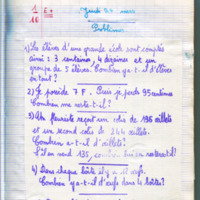 1/10 E+ Jeudi 24 mars
Problèmes
1) Les élèves d'une grande école sont comptés
ainsi : 3 centaines, 4 dizaines et un
groupe de 5 élèves. Combien y a-t-il d'élèves
en tout ?
2) Je possède 7 F. Puis je perds 95 centimes
Combien me reste-t-il ?
3) Un fleuriste reçoit un colis de 136 œillets
et un second colis de 244 œillets.
Combien a-t-il d'œillets?
S'il en vend 135, combien lui en restera-t-il?
4) Dans chaque boîte il y a œufs.
Combien y a-t-il d'œufs dans la boîte?